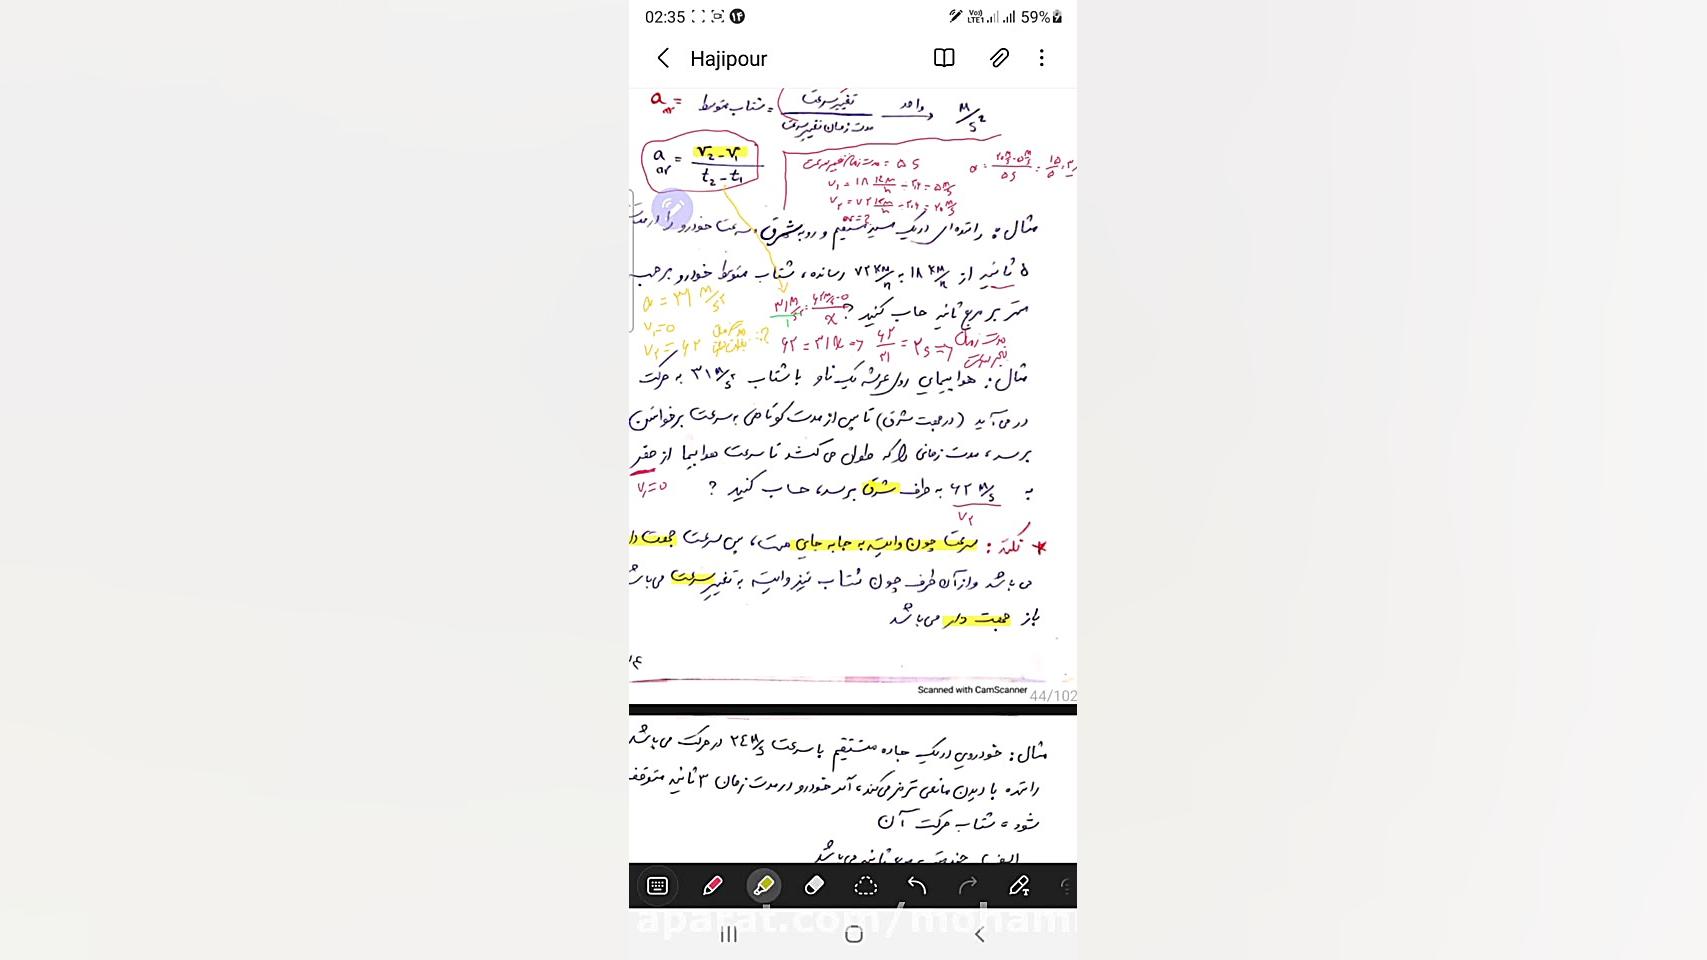 02:35 ۱۴ Vo)) LTE1 59%
Hajipour
a av = شتاب متوسط = تغییر سرعت / مدت زمان تغییر سرعت واحد → M/s²
a av = v₂ - v₁ / t₂ - t₁
مدت زمان تغییر سرعت = ۵ s
v₁ = ۱۸ km/h ÷ ۳,۶ = ۵ m/s
v₂ = ۷۲ km/h ÷ ۳,۶ = ۲۰ m/s
مثال: راننده‌ای در یک مسیر مستقیم و رو به شرق، سرعت خودرو را در مدت
۵ ثانیه از ۱۸ KM/h به ۷۲ KM/h رسانده، شتاب متوسط خودرو بر حسب
متر بر مربع ثانیه حساب کنید؟
a = ۳۱ M/s²
v₁ = ۰
v₂ = ۶۲
۶۲ = ۳۱x => ۶۲/۳۱ = ۲s => مدت زمان تغییر سرعت
مثال: هواپیمای روی عرشه یک ناو با شتاب ۳۱ M/s² به حرکت
در می‌آید (در جهت شرق) تا پس از مدت کوتاهی به سرعت برخواستن
برسد، مدت زمانی را که طول می‌کشد تا سرعت هواپیما از صفر
به ۶۲ M/s به طرف شرق برسد، حساب کنید ?
v₁=۰
v₂
* نکته: سرعت چون وابسته به جابه جایی هست، پس سرعت جهت دار
می باشد و از آن طرف چون شتاب نیز وابسته به تغییر سرعت می‌باشد
باز جهت دار می‌باشد
Scanned with CamScanner
44/102
مثال: خودرویی در یک جاده مستقیم با سرعت ۲٤ M/s در حرکت می‌باشد
راننده با دیدن مانعی ترمز می‌کند، اگر خودرو در مدت زمان ۳ ثانیه متوقف
شود، شتاب حرکت آن
aparat.com/moham